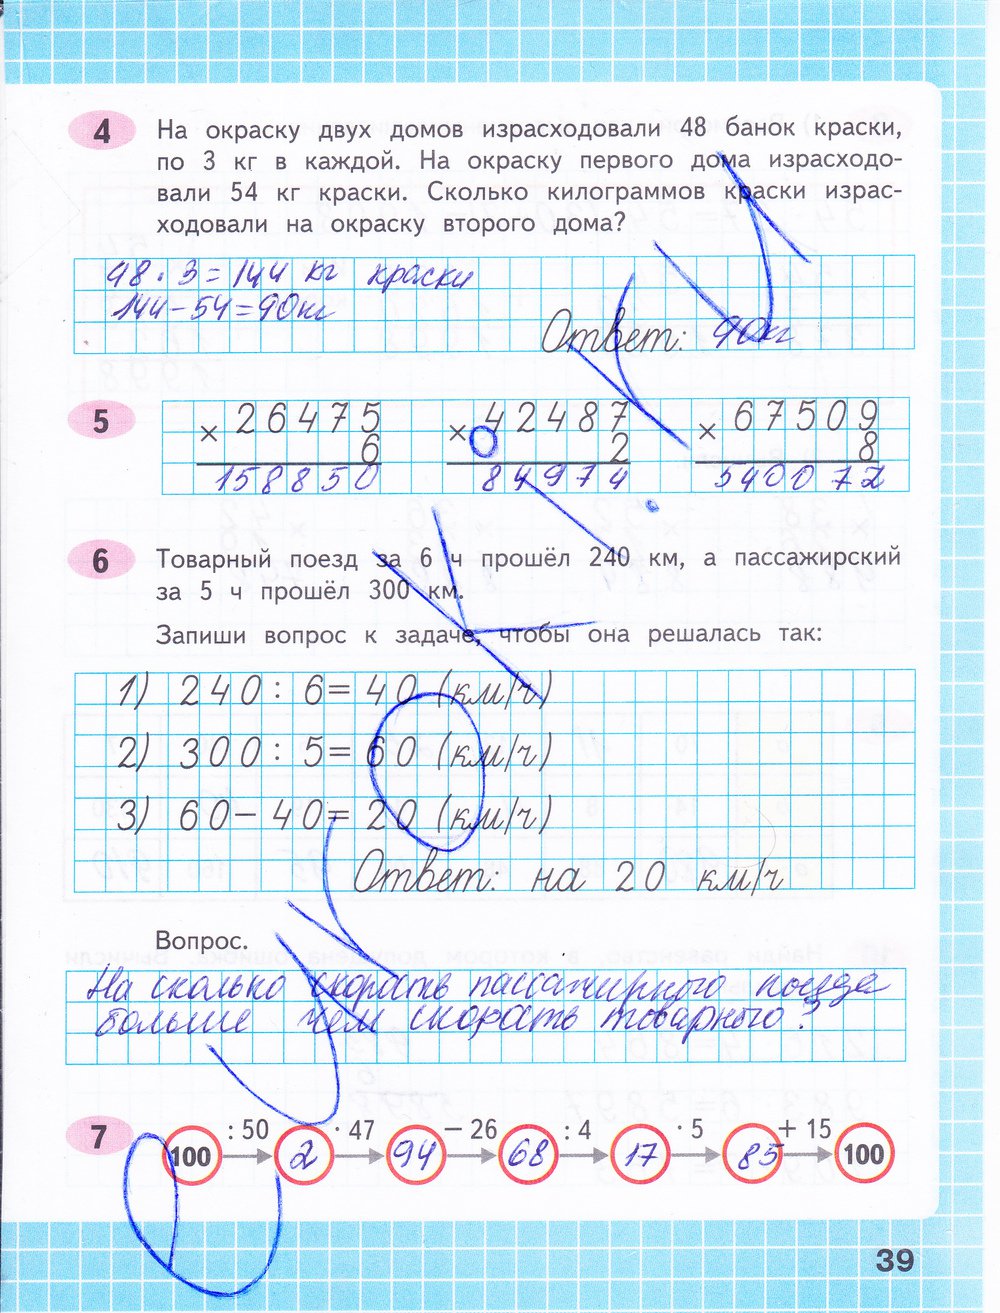 4 На окраску двух домов израсходовали 48 банок краски,
по 3 кг в каждой. На окраску первого дома израсходо-
вали 54 кг краски. Сколько килограммов краски израс-
ходовали на окраску второго дома?
48 · 3 = 144 кг краски
144 - 54 = 90 кг
Ответ: 90 кг
5 × 26475 × 42487 × 67509
6 2 8
158850 84974 540072
6 Товарный поезд за 6 ч прошёл 240 км, а пассажирский
за 5 ч прошёл 300 км.
Запиши вопрос к задаче, чтобы она решалась так:
1) 240 : 6 = 40 (км/ч)
2) 300 : 5 = 60 (км/ч)
3) 60 - 40 = 20 (км/ч)
Ответ: на 20 км/ч
Вопрос.
На сколько скорость пассажирного поезда
больше чем скорость товарного?
: 50 · 47 − 26 : 4 · 5 + 15
7 100 2 94 68 17 85 100
39